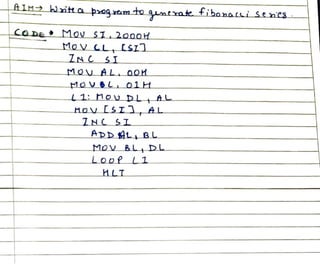 AIM→ Write a program to generate fibonacci series.
CODE • MOV SI, 2000H
MOV CL, [SI]
INC SI
MOV AL, 00H
MOV BL, 01H
L1: MOV DL, AL
MOV [SI], AL
INC SI
ADD AL, BL
MOV BL, DL
LOOP L1
HLT